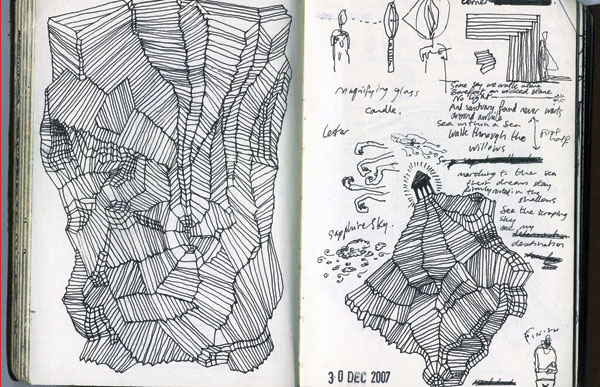 corner
magnifying glass
candle.
Letter
Some say we walk alone
Barefoot on wicked stone
No light
And sanctuary found never waits
around awhile
Sea within a Sea
Walk through the
willows
First
marching to the sea
their dream stay
in the
shallows
See the scraping
sky
see my
destination
sapphire sky.
FINISH
30 DEC 2007